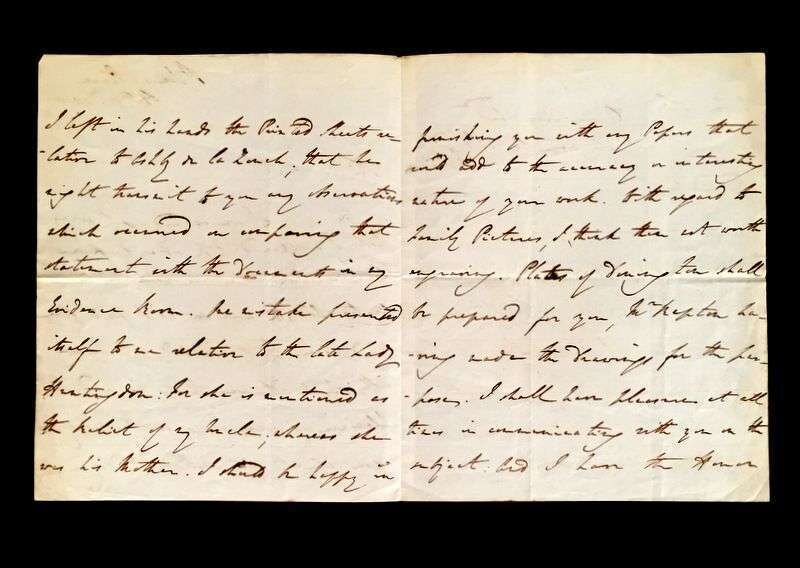 I left in his hands the Printed Sheets re-
-lation to Ashby de la Zouch; that he
might transmit to you any observations
which occurred on comparing that
statement with the Documents in my
Evidence Room. One mistake presented
itself to me relation to the late Lady
Huntingdon: For she is mentioned as
the Relict of my Uncle; whereas she
was his Mother. I should be happy in
furnishing you with any Papers that
could add to the accuracy or interesting
nature of your work. With regard to
Family Pictures, I think them not worth
engraving. Plates of Dunington shall
be prepared for you, Mr. Repton ha-
-ving made the Drawings for the pur-
-pose. I shall have pleasure at all
times in communicating with you on the
subject: And I have the Honor